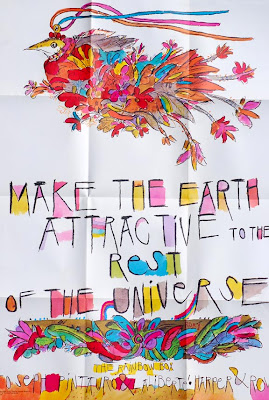 MAKE THE EARTH
ATTRACTIVE TO THE
REST
OF THE UNIVERSE
THE RAINBOW BOX
HARPER &